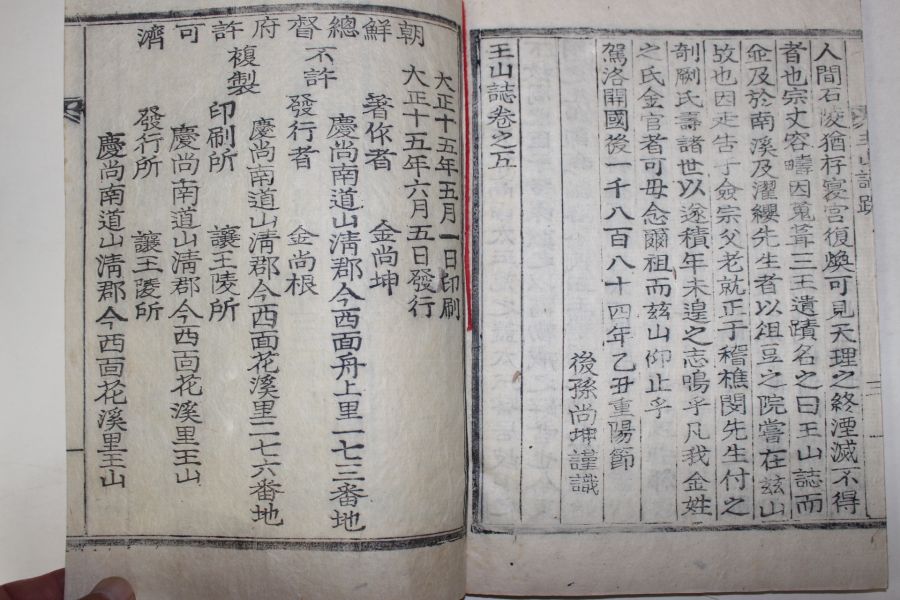 人間石陵猶存寢宮復煥可見天理之終湮滅不得
者也宗丈容疇因蒐葺三王遺蹟名之曰王山誌而
並及於南溪及濯纓先生者以俎豆之院嘗在玆山
故也因走告于僉宗父老就正于稽樵閔先生付之
剞劂氏壽諸世以遂積年未遑之志嗚乎凡我金姓
之氏金官者可毋念爾祖而玆山仰止乎
駕洛開國後一千八百八十四年乙丑重陽節
後孫尚坤謹識
王山誌卷之五
王山誌跋
二
大正十五年五月一日印刷
大正十五年六月五日發行
朝鮮總督府許可濟
不許複製
慶尚南道山淸郡今西面舟上里一七三番地
著作者 金尚坤
慶尚南道山淸郡今西面花溪里二七六番地
發行者 金尚根
慶尚南道山淸郡今西面花溪里王山
印刷所 讓王陵所
慶尚南道山淸郡今西面花溪里王山
發行所 讓王陵所